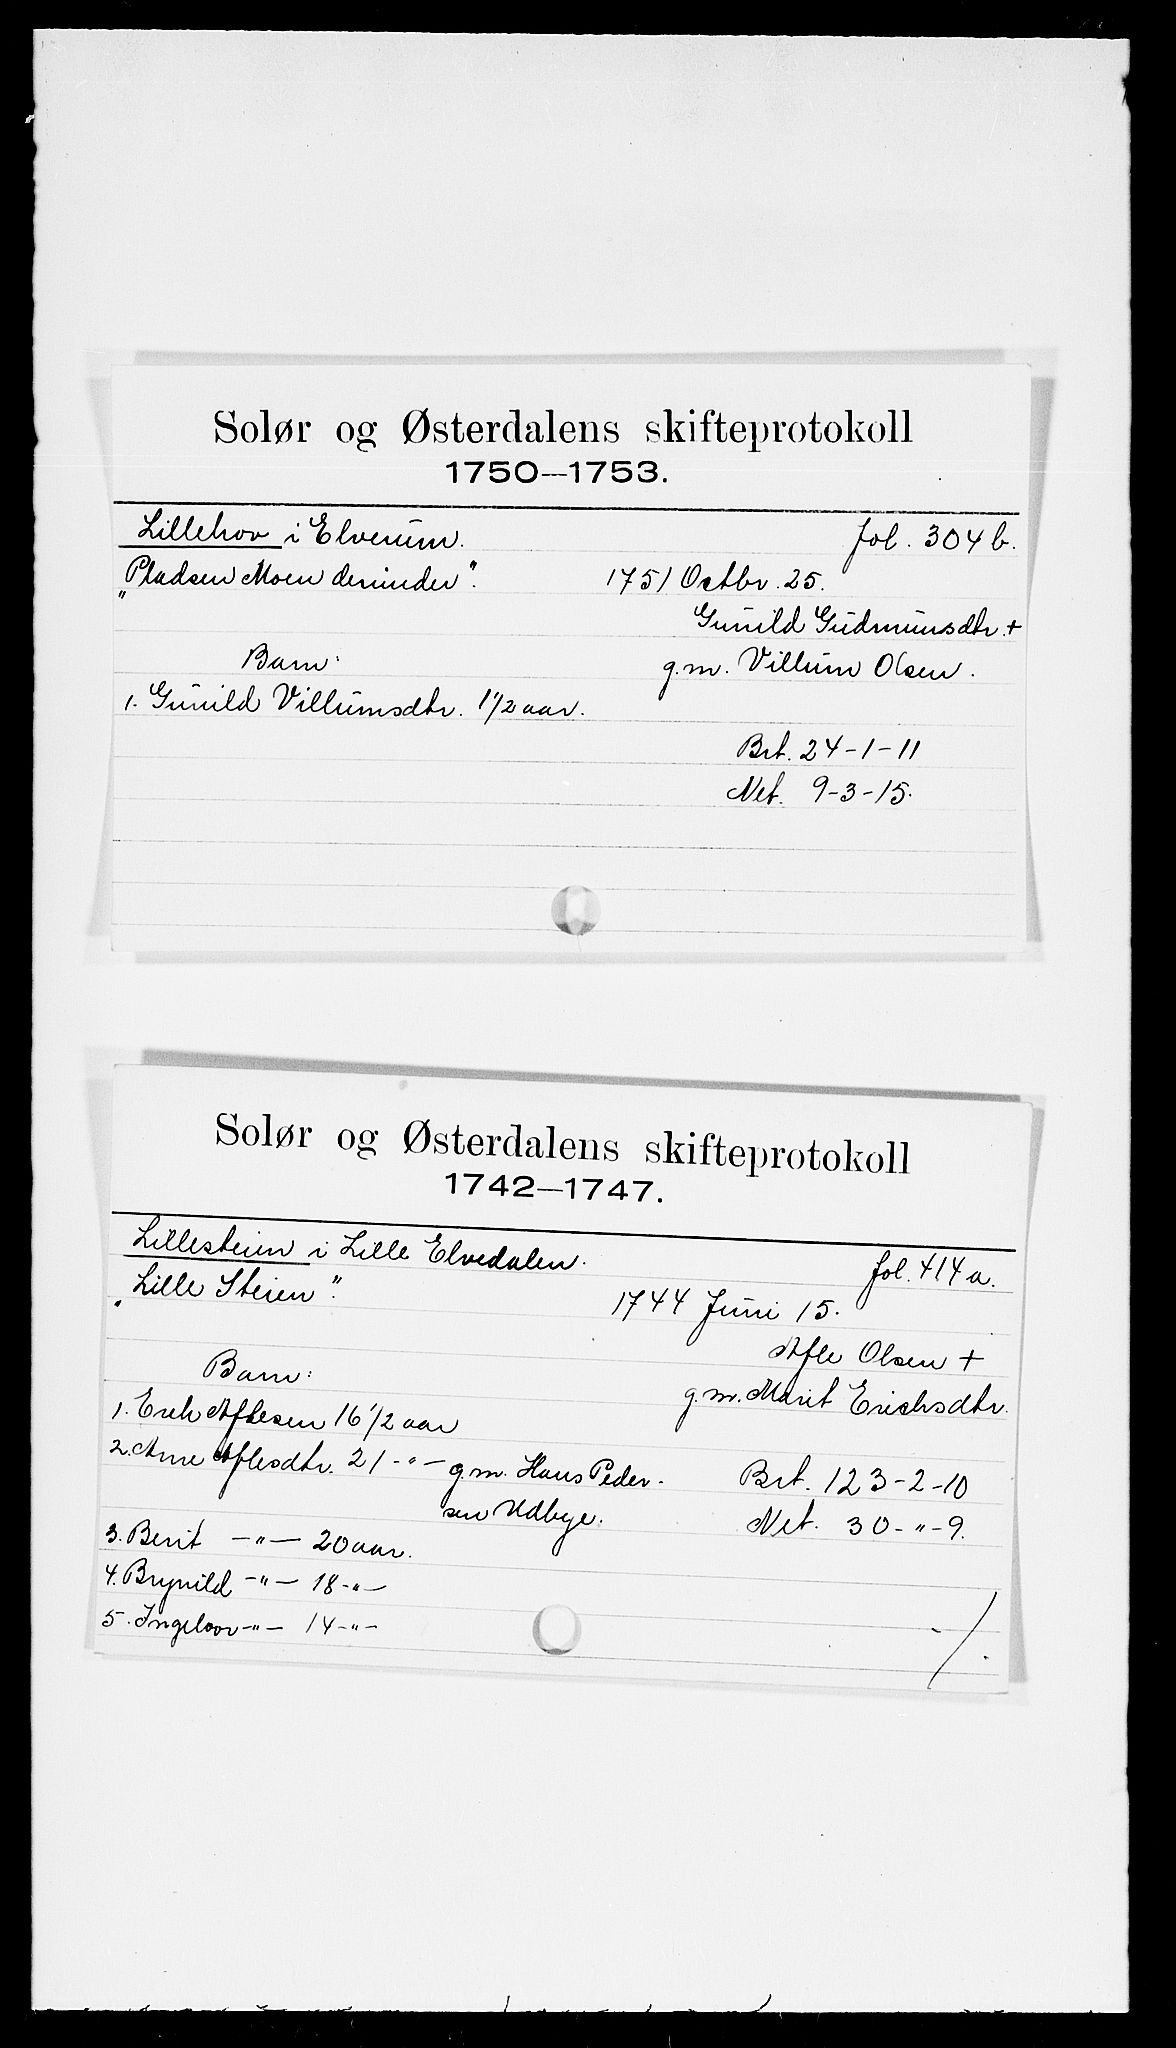 Solør og Østerdalens skifteprotokoll
1750—1753.
Lillehov i Elverum. fol. 304 b.
"Pladsen Moen derunder". 1751 Octbr. 25.
Gunild Gudmunsdtr. +
Barn: g.m. Villum Olsen.
1. Gunild Villumsdtr. 1 1/2 aar.
Brt. 24-1-11
Net. 9-3-15.
Solør og Østerdalens skifteprotokoll
1742—1747.
Lillesteien i Lille Elvedalen. fol. 414 a.
"Lille Steien". 1744 Juni 15.
Afle Olsen +
Barn: g.m. Marit Erichsdtr.
1. Erich Aflesen 16 1/2 aar
2. Arne Aflesdtr. 21 -"- g.m. Hans Peder- Brt. 123-2-10
sen Udbye. Net. 30-"-9.
3. Berit -"- 20 aar.
4. Brynild -"- 18 -"-
5. Ingeboor -"- 14 -"-
./.